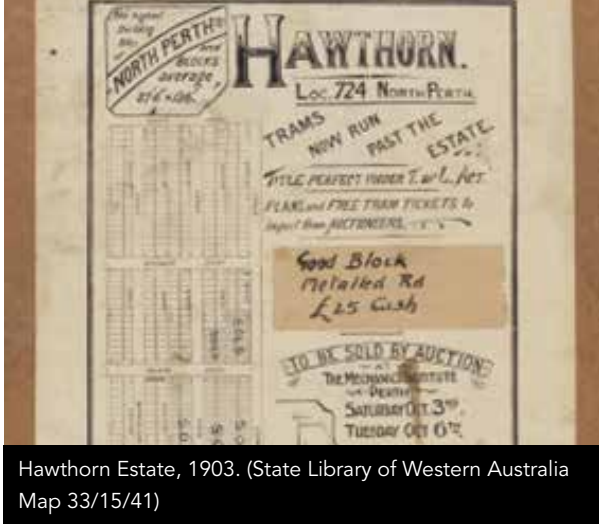 The highest
building
NORTH PERTH
and
BLOCKS
average
HAWTHORN.
LOC. 724 NORTH PERTH.
TRAMS
NOW RUN
PAST THE
ESTATE.
TITLE PERFECT UNDER T. of L. ACT.
PLANS and FREE TRAM TICKETS to
inspect from AUCTIONEERS.
Good Block
Metalled Rd
£25 Cash
TO BE SOLD BY AUCTION
AT
THE MECHANICS INSTITUTE
PERTH
SATURDAY OCT. 3RD.
TUESDAY OCT 6TH.
SOLD
Hawthorn Estate, 1903. (State Library of Western Australia
Map 33/15/41)